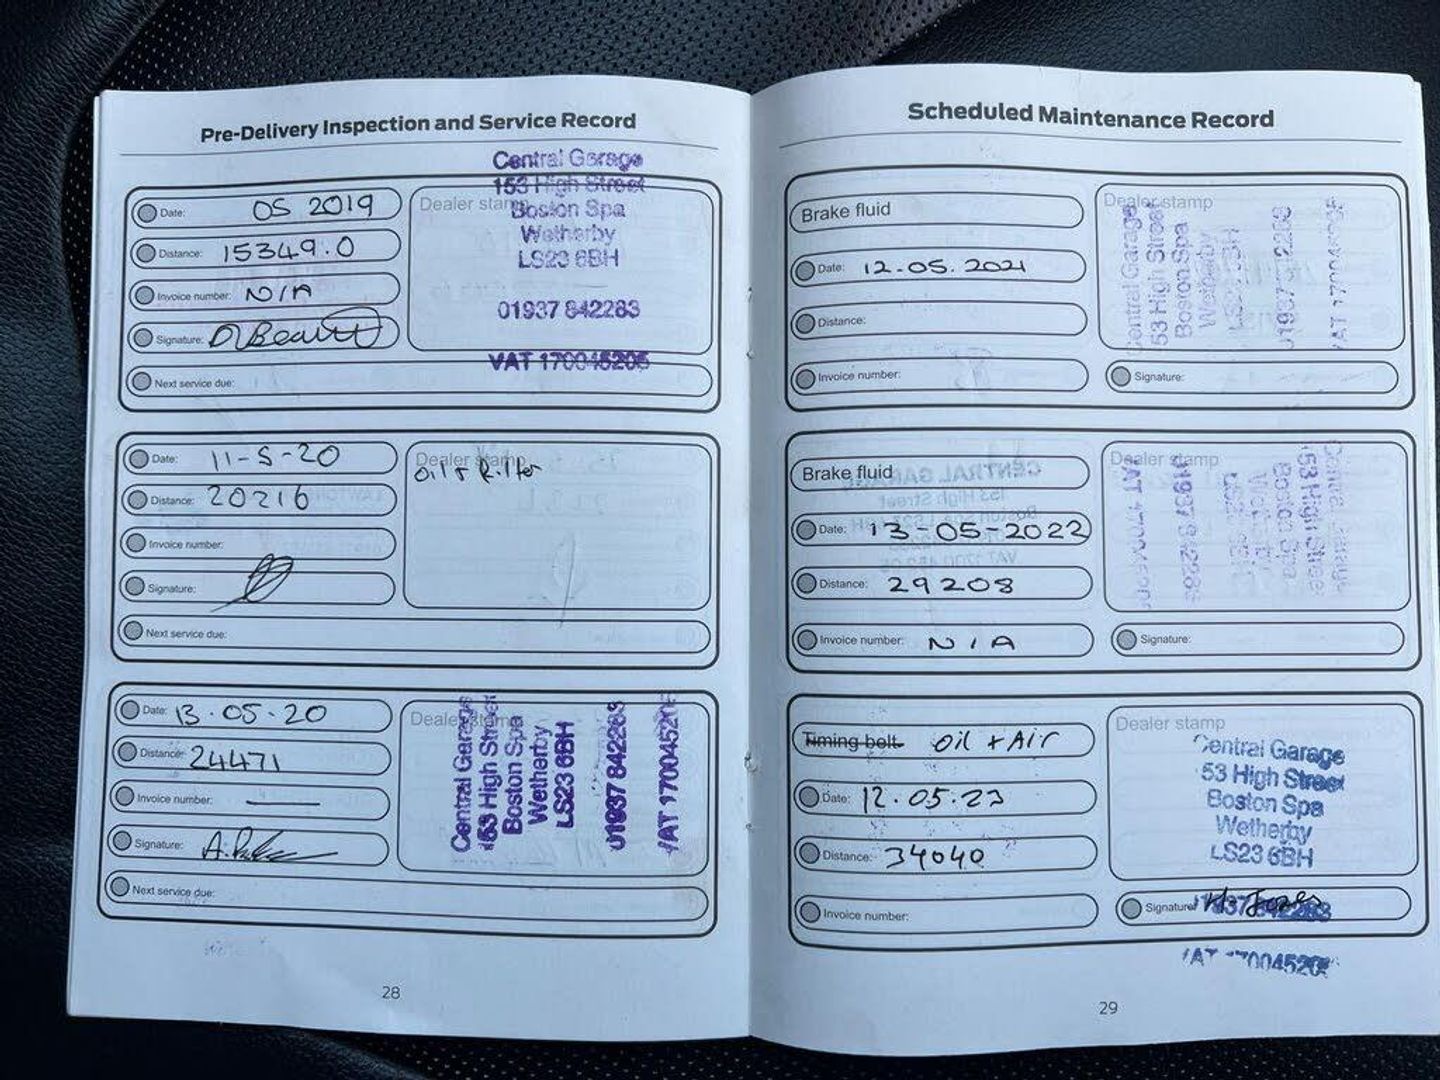 Pre-Delivery Inspection and Service Record
Central Garage
153 High Street
Boston Spa
Wetherby
LS23 6BH
01937 842283
VAT 170045205
Date: 05 2019
Distance: 15349.0
Invoice number: N/A
Signature:
Next service due:
Dealer stamp
Date: 11-5-20
Distance: 20216
Invoice number:
Signature:
Next service due:
Dealer stamp
Oil & Filter
Date: 13.05.20
Distance: 24471
Invoice number:
Signature:
Next service due:
Dealer stamp
Central Garage
153 High Street
Boston Spa
Wetherby
LS23 6BH
01937 842283
VAT 170045205
28
Scheduled Maintenance Record
Brake fluid
Date: 12.05.2021
Distance:
Invoice number:
Dealer stamp
Central Garage
53 High Street
Boston Spa
Wetherby
Signature:
Brake fluid
Date: 13-05-2022
Distance: 29208
Invoice number: N/A
Dealer stamp
153 High Street
Boston Spa
01937 842283
Signature:
Timing belt Oil + Air
Date: 12.05.23
Distance: 34040
Invoice number:
Dealer stamp
Central Garage
53 High Street
Boston Spa
Wetherby
LS23 6BH
Signature: H. Jones
1937 842283
VAT 170045205
29